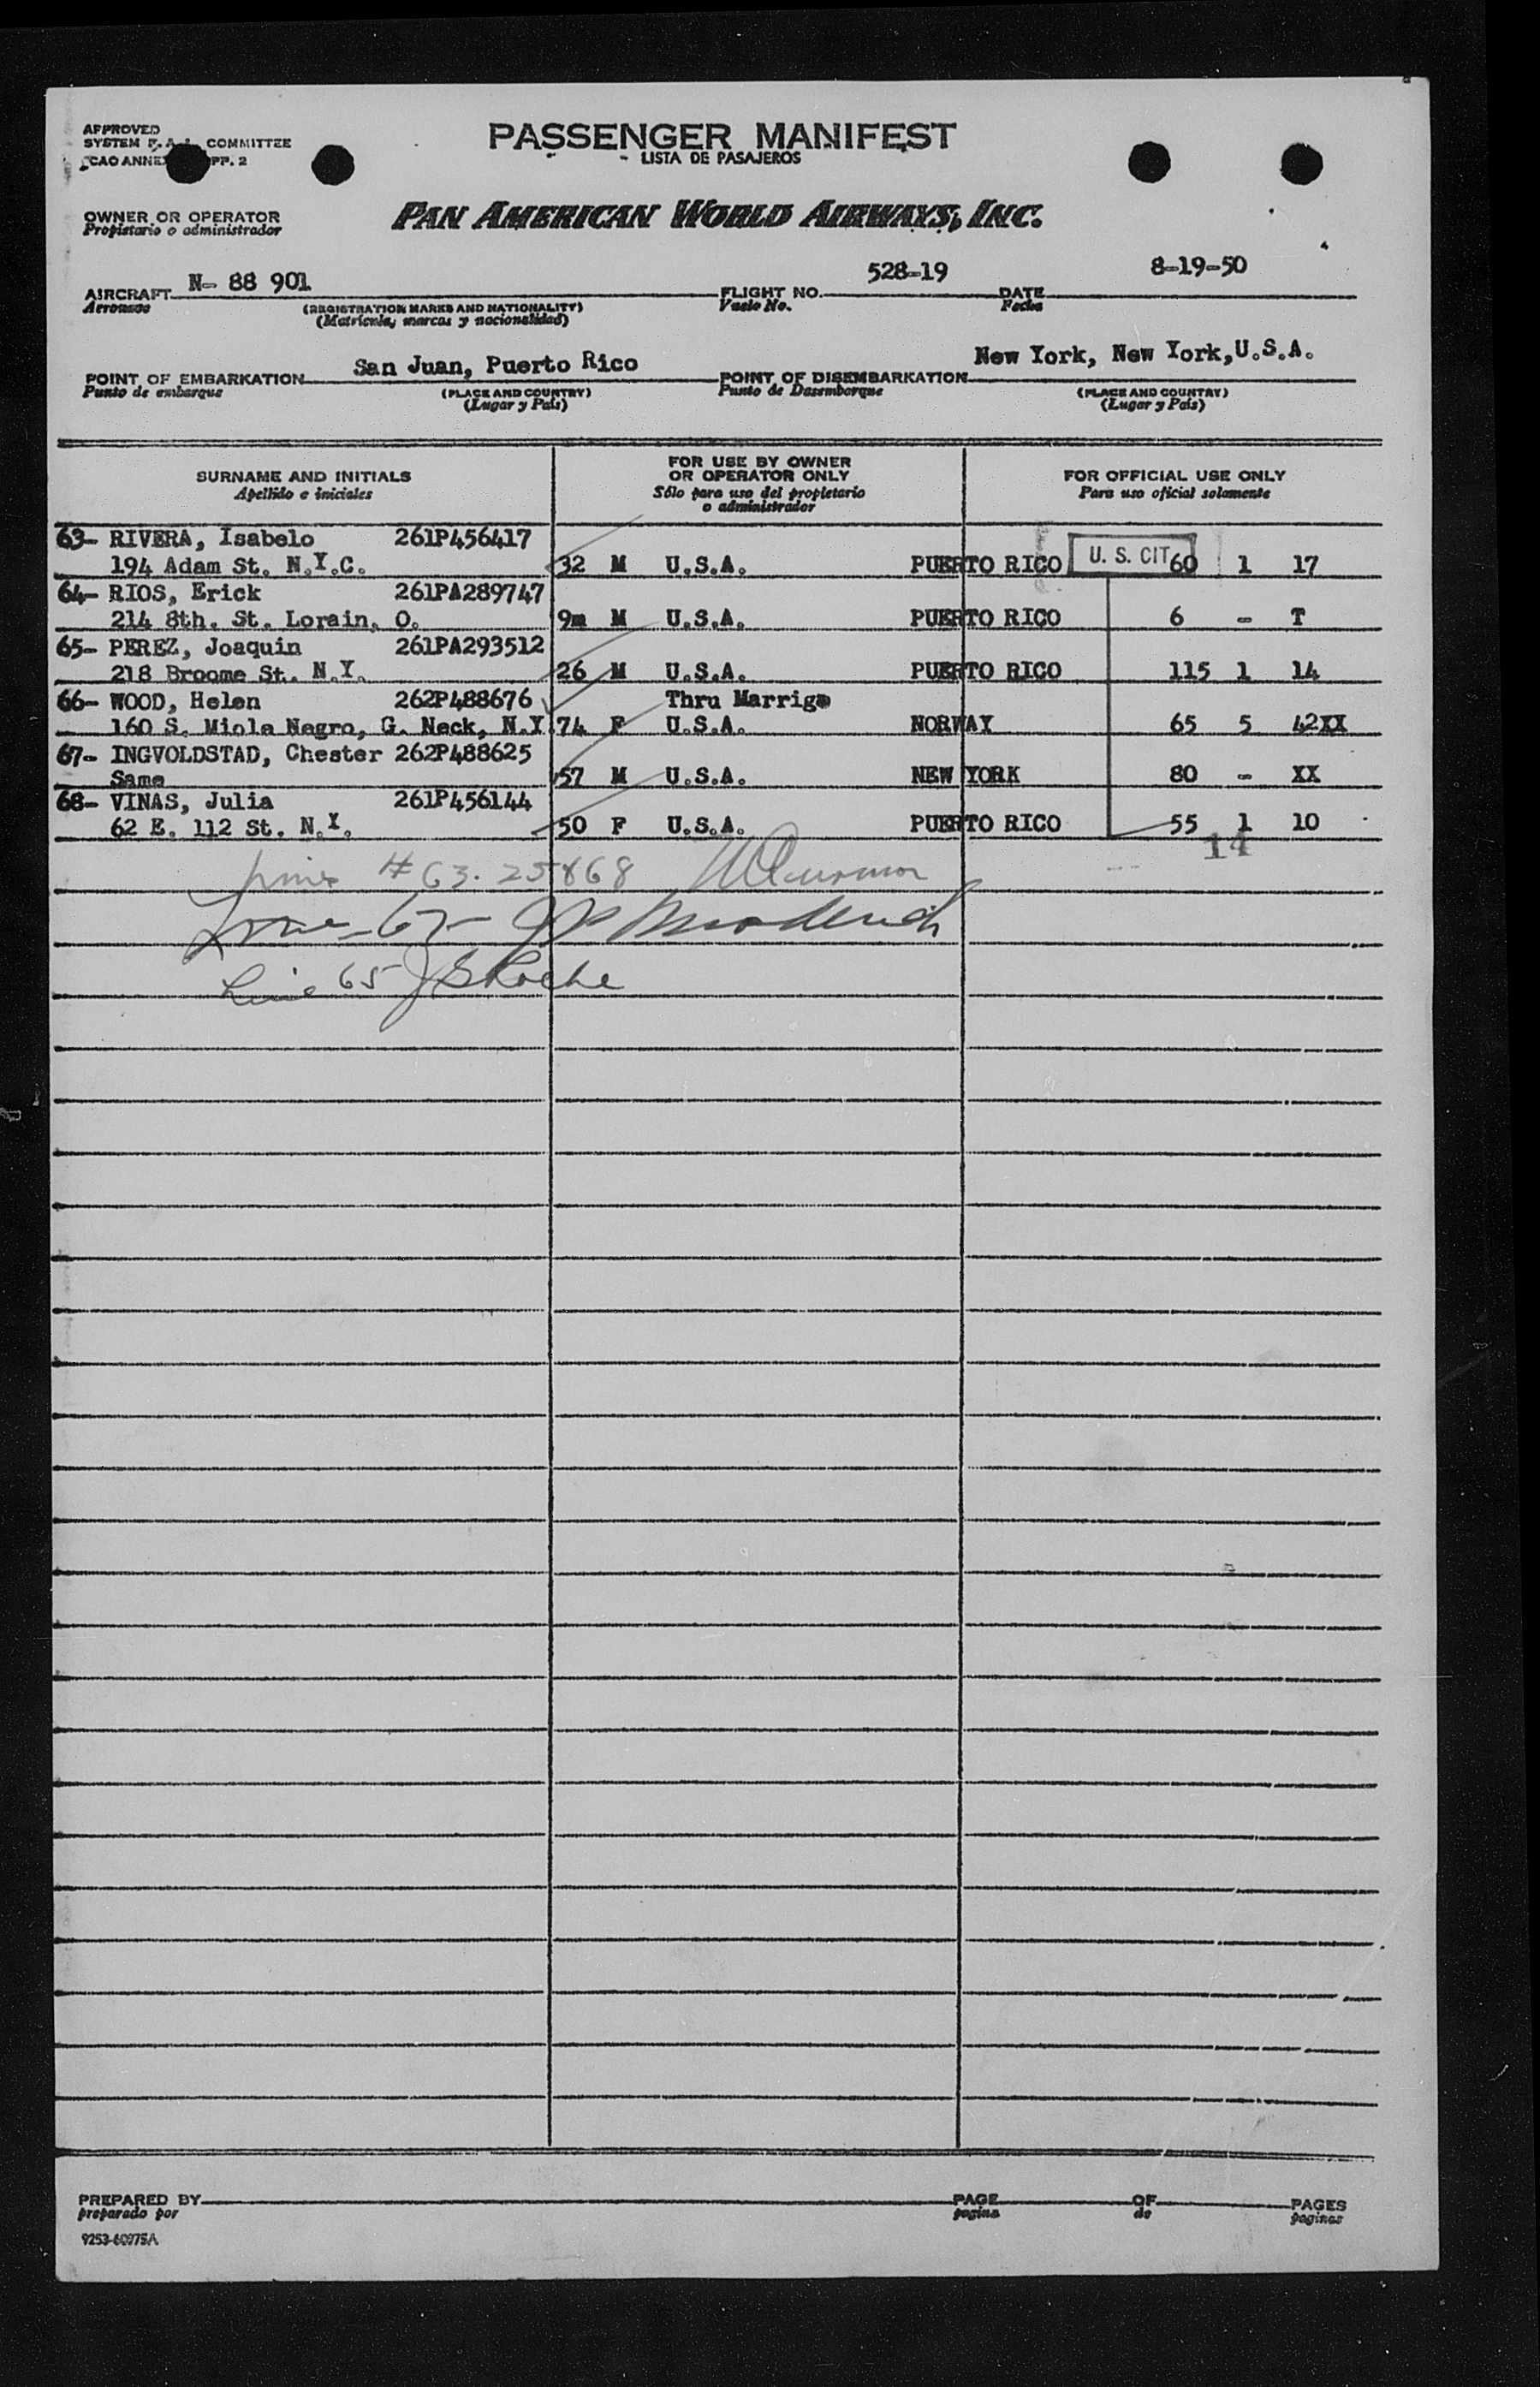 APPROVED
SYSTEM F. A. L. COMMITTEE
ICAO ANNEX APP. 2
PASSENGER MANIFEST
LISTA DE PASAJEROS
OWNER OR OPERATOR
Propietario o administrador
PAN AMERICAN WORLD AIRWAYS, INC.
AIRCRAFT N- 88 901 FLIGHT NO. 528-19 DATE 8-19-50
Aeronave (REGISTRATION MARKS AND NATIONALITY) Vuelo No. Fecha
(Matricula, marcas y nacionalidad)
POINT OF EMBARKATION San Juan, Puerto Rico POINT OF DISEMBARKATION New York, New York, U.S.A.
Punto de embarque (PLACE AND COUNTRY) Punto de Desemborque (PLACE AND COUNTRY)
(Lugar y País) (Lugar y País)
SURNAME AND INITIALS
Apellido e iniciales
FOR USE BY OWNER
OR OPERATOR ONLY
Sólo para uso del propietario
o administrador
FOR OFFICIAL USE ONLY
Para uso oficial solamente
63- RIVERA, Isabelo 261P456417
194 Adam St. N.Y.C. 32 M U.S.A. PUERTO RICO U. S. CIT 60 1 17
64- RIOS, Erick 261PA289747
214 8th. St. Lorain, O. 9m M U.S.A. PUERTO RICO 6 - T
65- PEREZ, Joaquin 261PA293512
218 Broome St. N.Y. 26 M U.S.A. PUERTO RICO 115 1 14
66- WOOD, Helen 262P488676 Thru Marrige
160 S. Miole Nagro, G. Neck, N.Y 74 F U.S.A. NORWAY 65 5 42XX
67- INGVOLDSTAD, Chester 262P488625
Same 57 M U.S.A. NEW YORK 80 - XX
68- VINAS, Julia 261P456144
62 E. 112 St. N.Y. 50 F U.S.A. PUERTO RICO 55 1 10
14
# 63.
67-
Line 65 Roche
PREPARED BY PAGE OF PAGES
preparado por pagina de paginas
9253-60975A